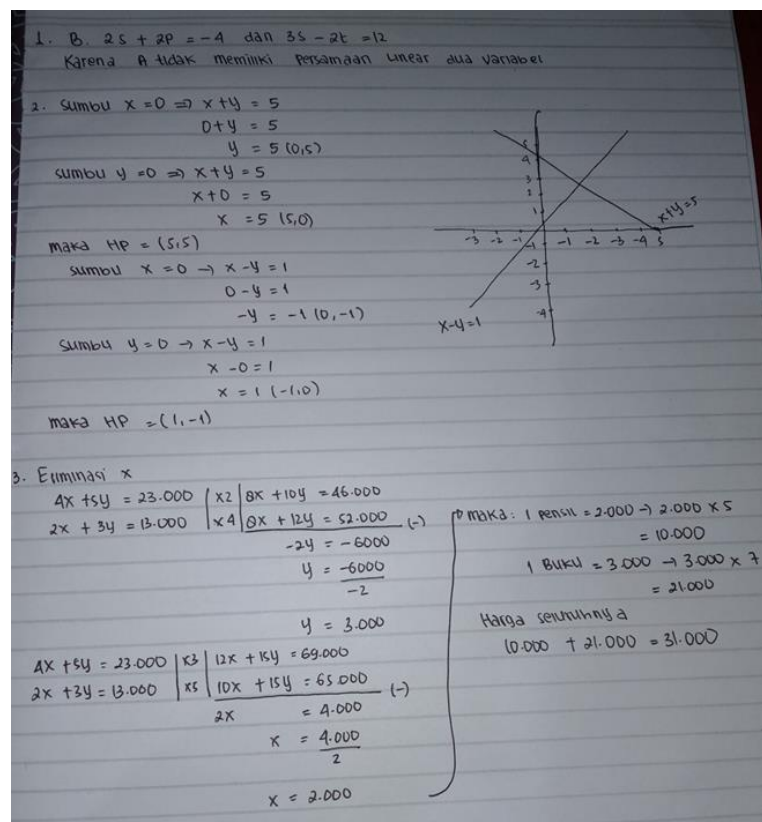 1. B. 2s + 2p = -4 dan 3s - 2t = 12
Karena A tidak memiliki Persamaan Linear dua Variabel
2. Sumbu x = 0 => x + y = 5
0 + y = 5
y = 5 (0,5)
sumbu y = 0 => x + y = 5
x + 0 = 5
x = 5 (5,0)
maka HP = (5,5)
sumbu x = 0 → x - y = 1
0 - y = 1
-y = -1 (0,-1)
Sumbu y = 0 → x - y = 1
x - 0 = 1
x = 1 (-1,0)
maka HP = (1,-1)
5
4
3
2
1
-3 -2 -1 -1 -2 -3 -4 5
-1
-2
-3
-4
x+y=5
x-y=1
3. Eliminasi x
4x + 5y = 23.000 | x2 | 8x + 10y = 46.000
2x + 3y = 13.000 | x4 | 8x + 12y = 52.000 (-)
-2y = -6000
y = -6000
-2
y = 3.000
4x + 5y = 23.000 | x3 | 12x + 15y = 69.000
2x + 3y = 13.000 | x5 | 10x + 15y = 65.000 (-)
2x = 4.000
x = 4.000
2
x = 2.000
maka: 1 pensil = 2.000 → 2.000 x 5
= 10.000
1 Buku = 3.000 → 3.000 x 7
= 21.000
Harga seluruhnya
10.000 + 21.000 = 31.000